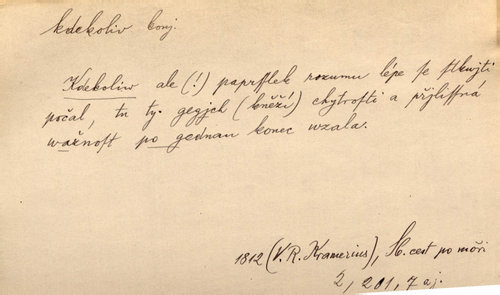 kdekoliv conj.
Kdekoliw ale (!) paprslek rozumu lépe se stkwjti
počal, tu ty gegjch (kněží) chytrosti a přjlissná
wážnost po gednau konec wzala.
1812 (V. R. Kramerius), Sb. cest po moři
2, 201, 7 aj.